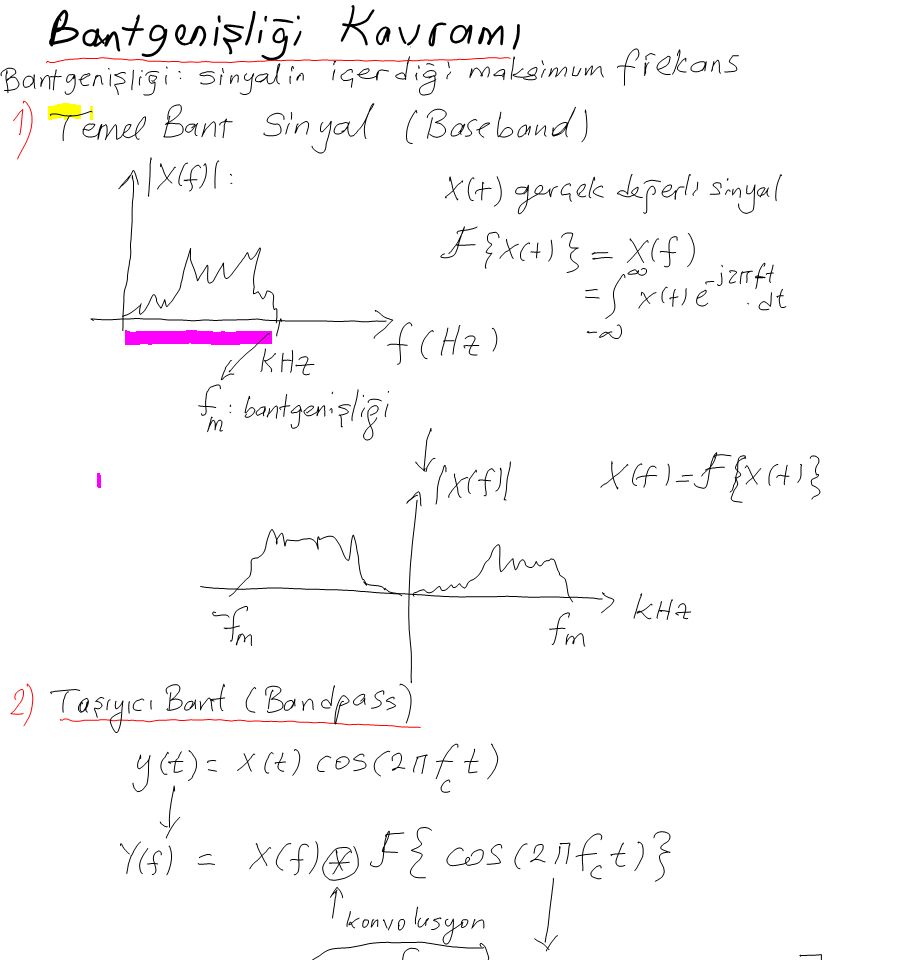 Bantgenişliği Kavramı
Bantgenişliği: sinyalin içerdiği maksimum frekans
1) Temel Bant Sinyal (Baseband)
|X(f)|:
x(t) gerçek değerli sinyal
F{x(t)} = X(f)
= ∫_{-∞}^{∞} x(t) e^{-j2πft} . dt
f (Hz)
kHz
f_m : bantgenişliği
|X(f)|
X(f) = F{x(t)}
kHz
-f_m
f_m
2) Taşıyıcı Bant (Bandpass)
y(t) = x(t) cos(2πf_c t)
Y(f) = X(f) ⊛ F{cos(2πf_c t)}
konvolusyon